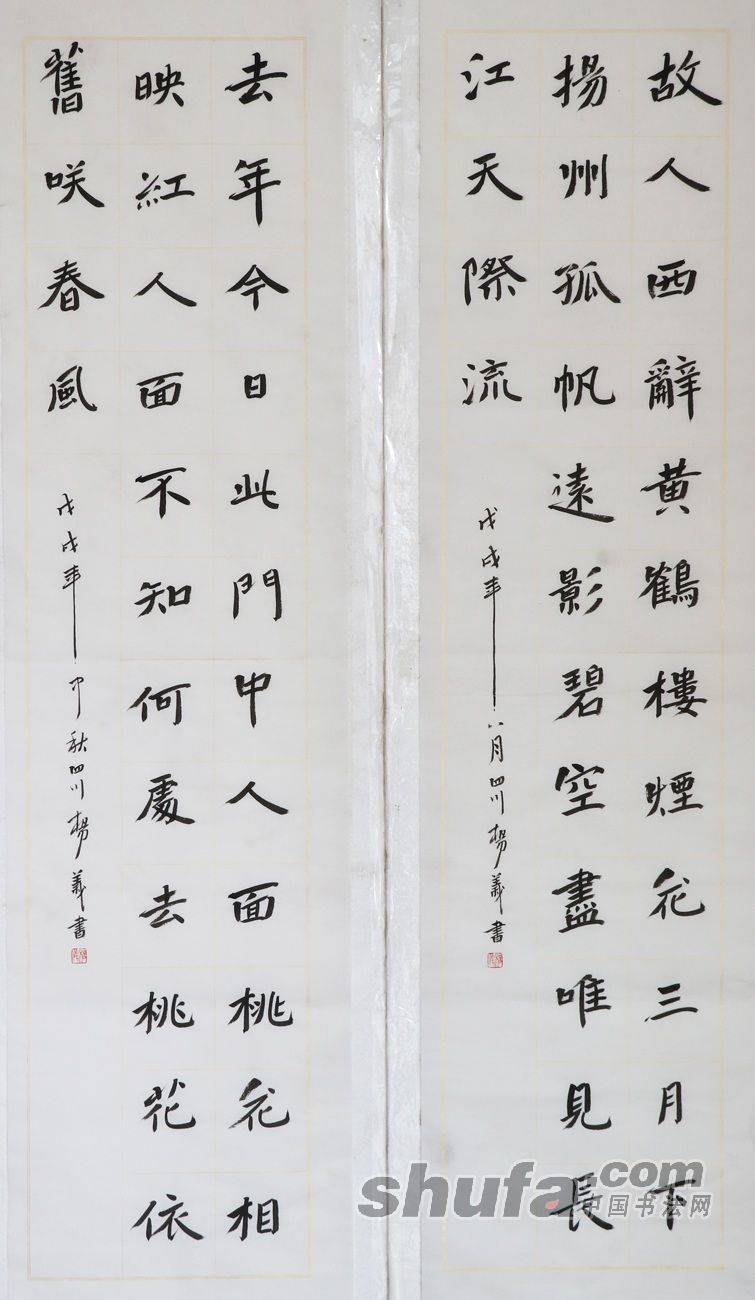 故人西辭黄鶴樓煙花三月下
揚州孤帆遠影碧空盡唯見長
江天際流
戊戌年八月四川楊義書
去年今日此門中人面桃花相
映紅人面不知何處去桃花依
舊咲春風
戊戌年中秋四川楊義書
shufa.com
中国书法网